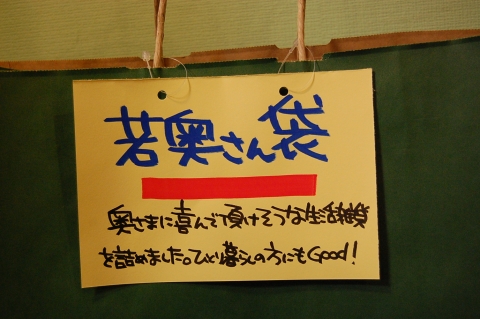 若奥さん袋
奥さまに喜んで頂けそうな生活雑貨
を詰めました。ひとり暮らしの方にもGood!